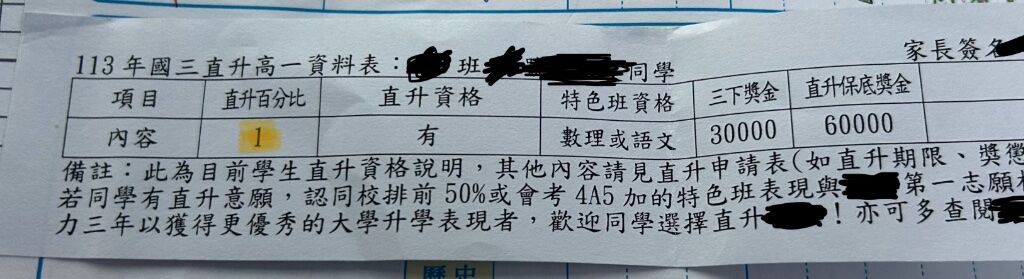 113年國三直升高一資料表： 班 同學 家長簽名
項目 直升百分比 直升資格 特色班資格 三下獎金 直升保底獎金
內容 1 有 數理或語文 30000 60000
備註：此為目前學生直升資格說明，其他內容請見直升申請表(如直升期限、獎懲
若同學有直升意願，認同校排前50%或會考4A5加的特色班表現與 第一志願相
力三年以獲得更優秀的大學升學表現者，歡迎同學選擇直升 ！亦可多查閱
歷史